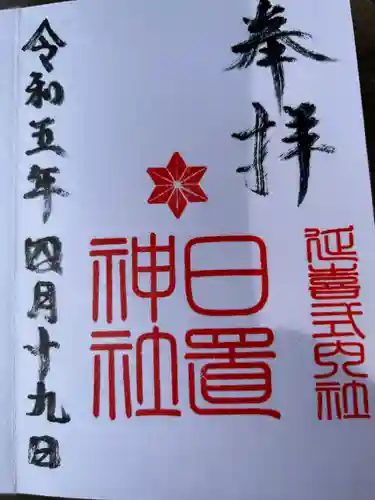 奉拝
延喜式内社
日置
神社
令和五年四月十九日